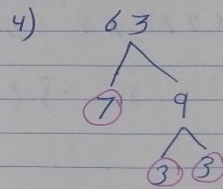 4) 63
7 9
3 3